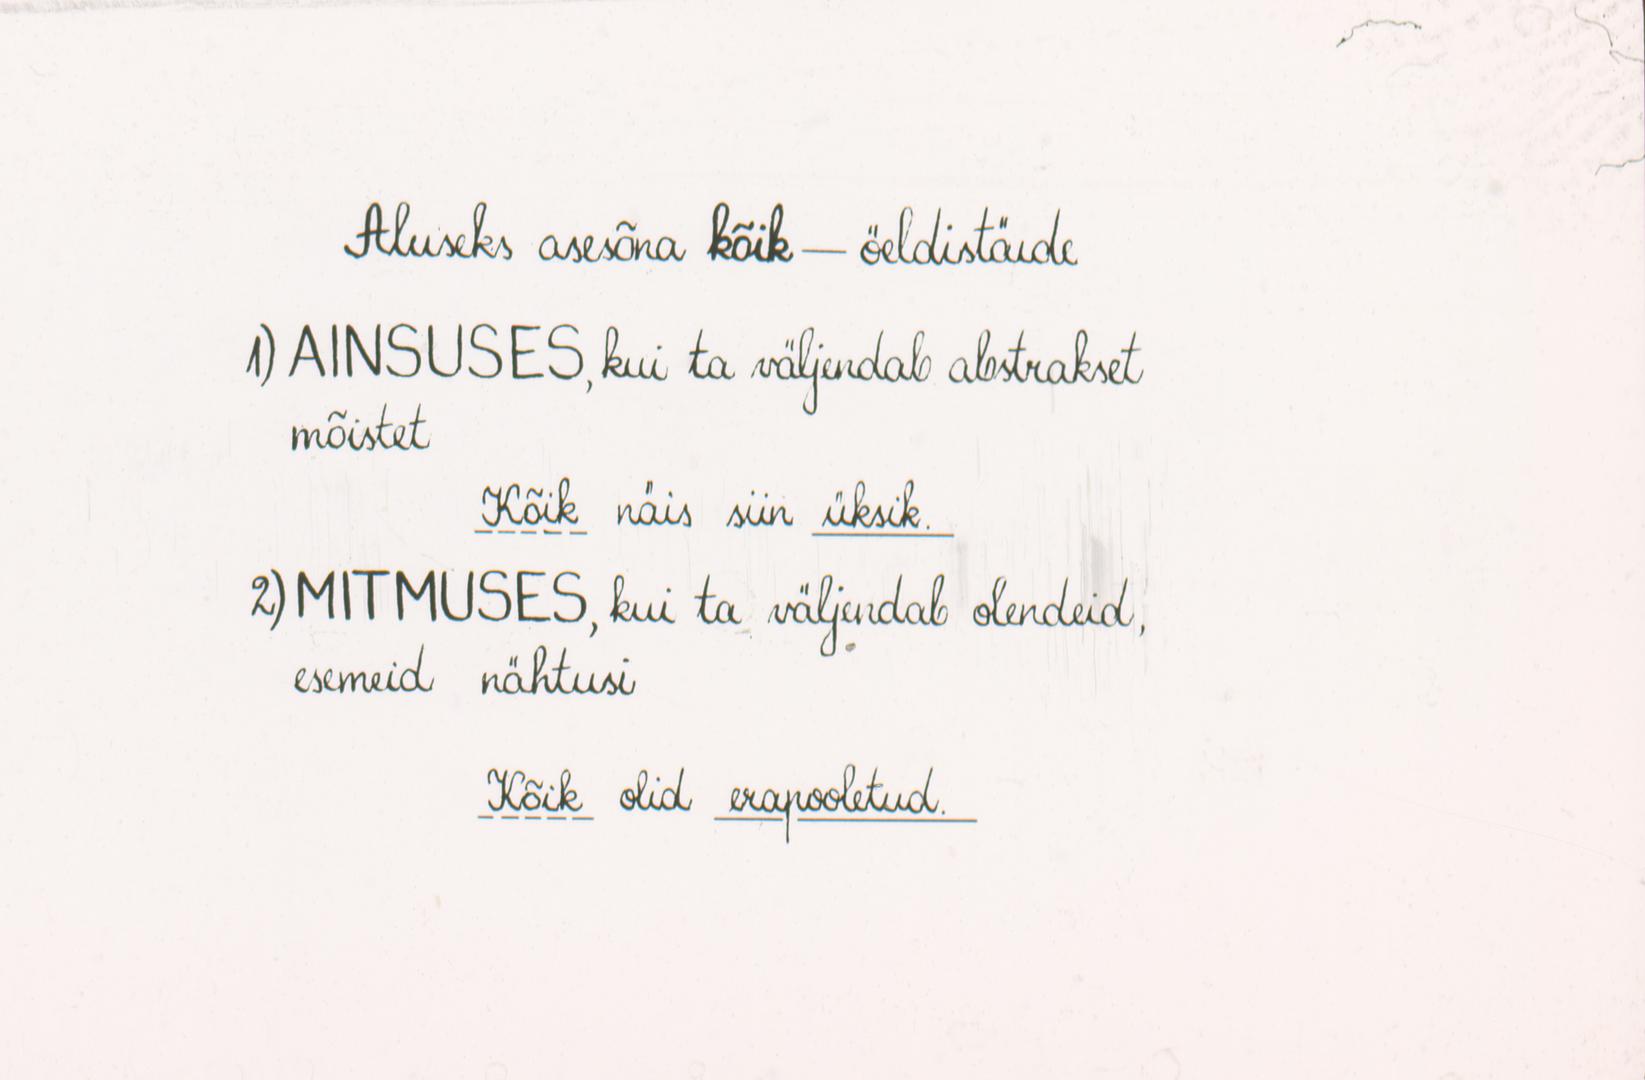 Aluseks asesõna kõik — öeldistäide
1) AINSUSES, kui ta väljendab abstrakset
mõistet
Kõik näis siin üksik.
2) MITMUSES, kui ta väljendab olendeid,
esemeid nähtusi
Kõik olid erapooletud.